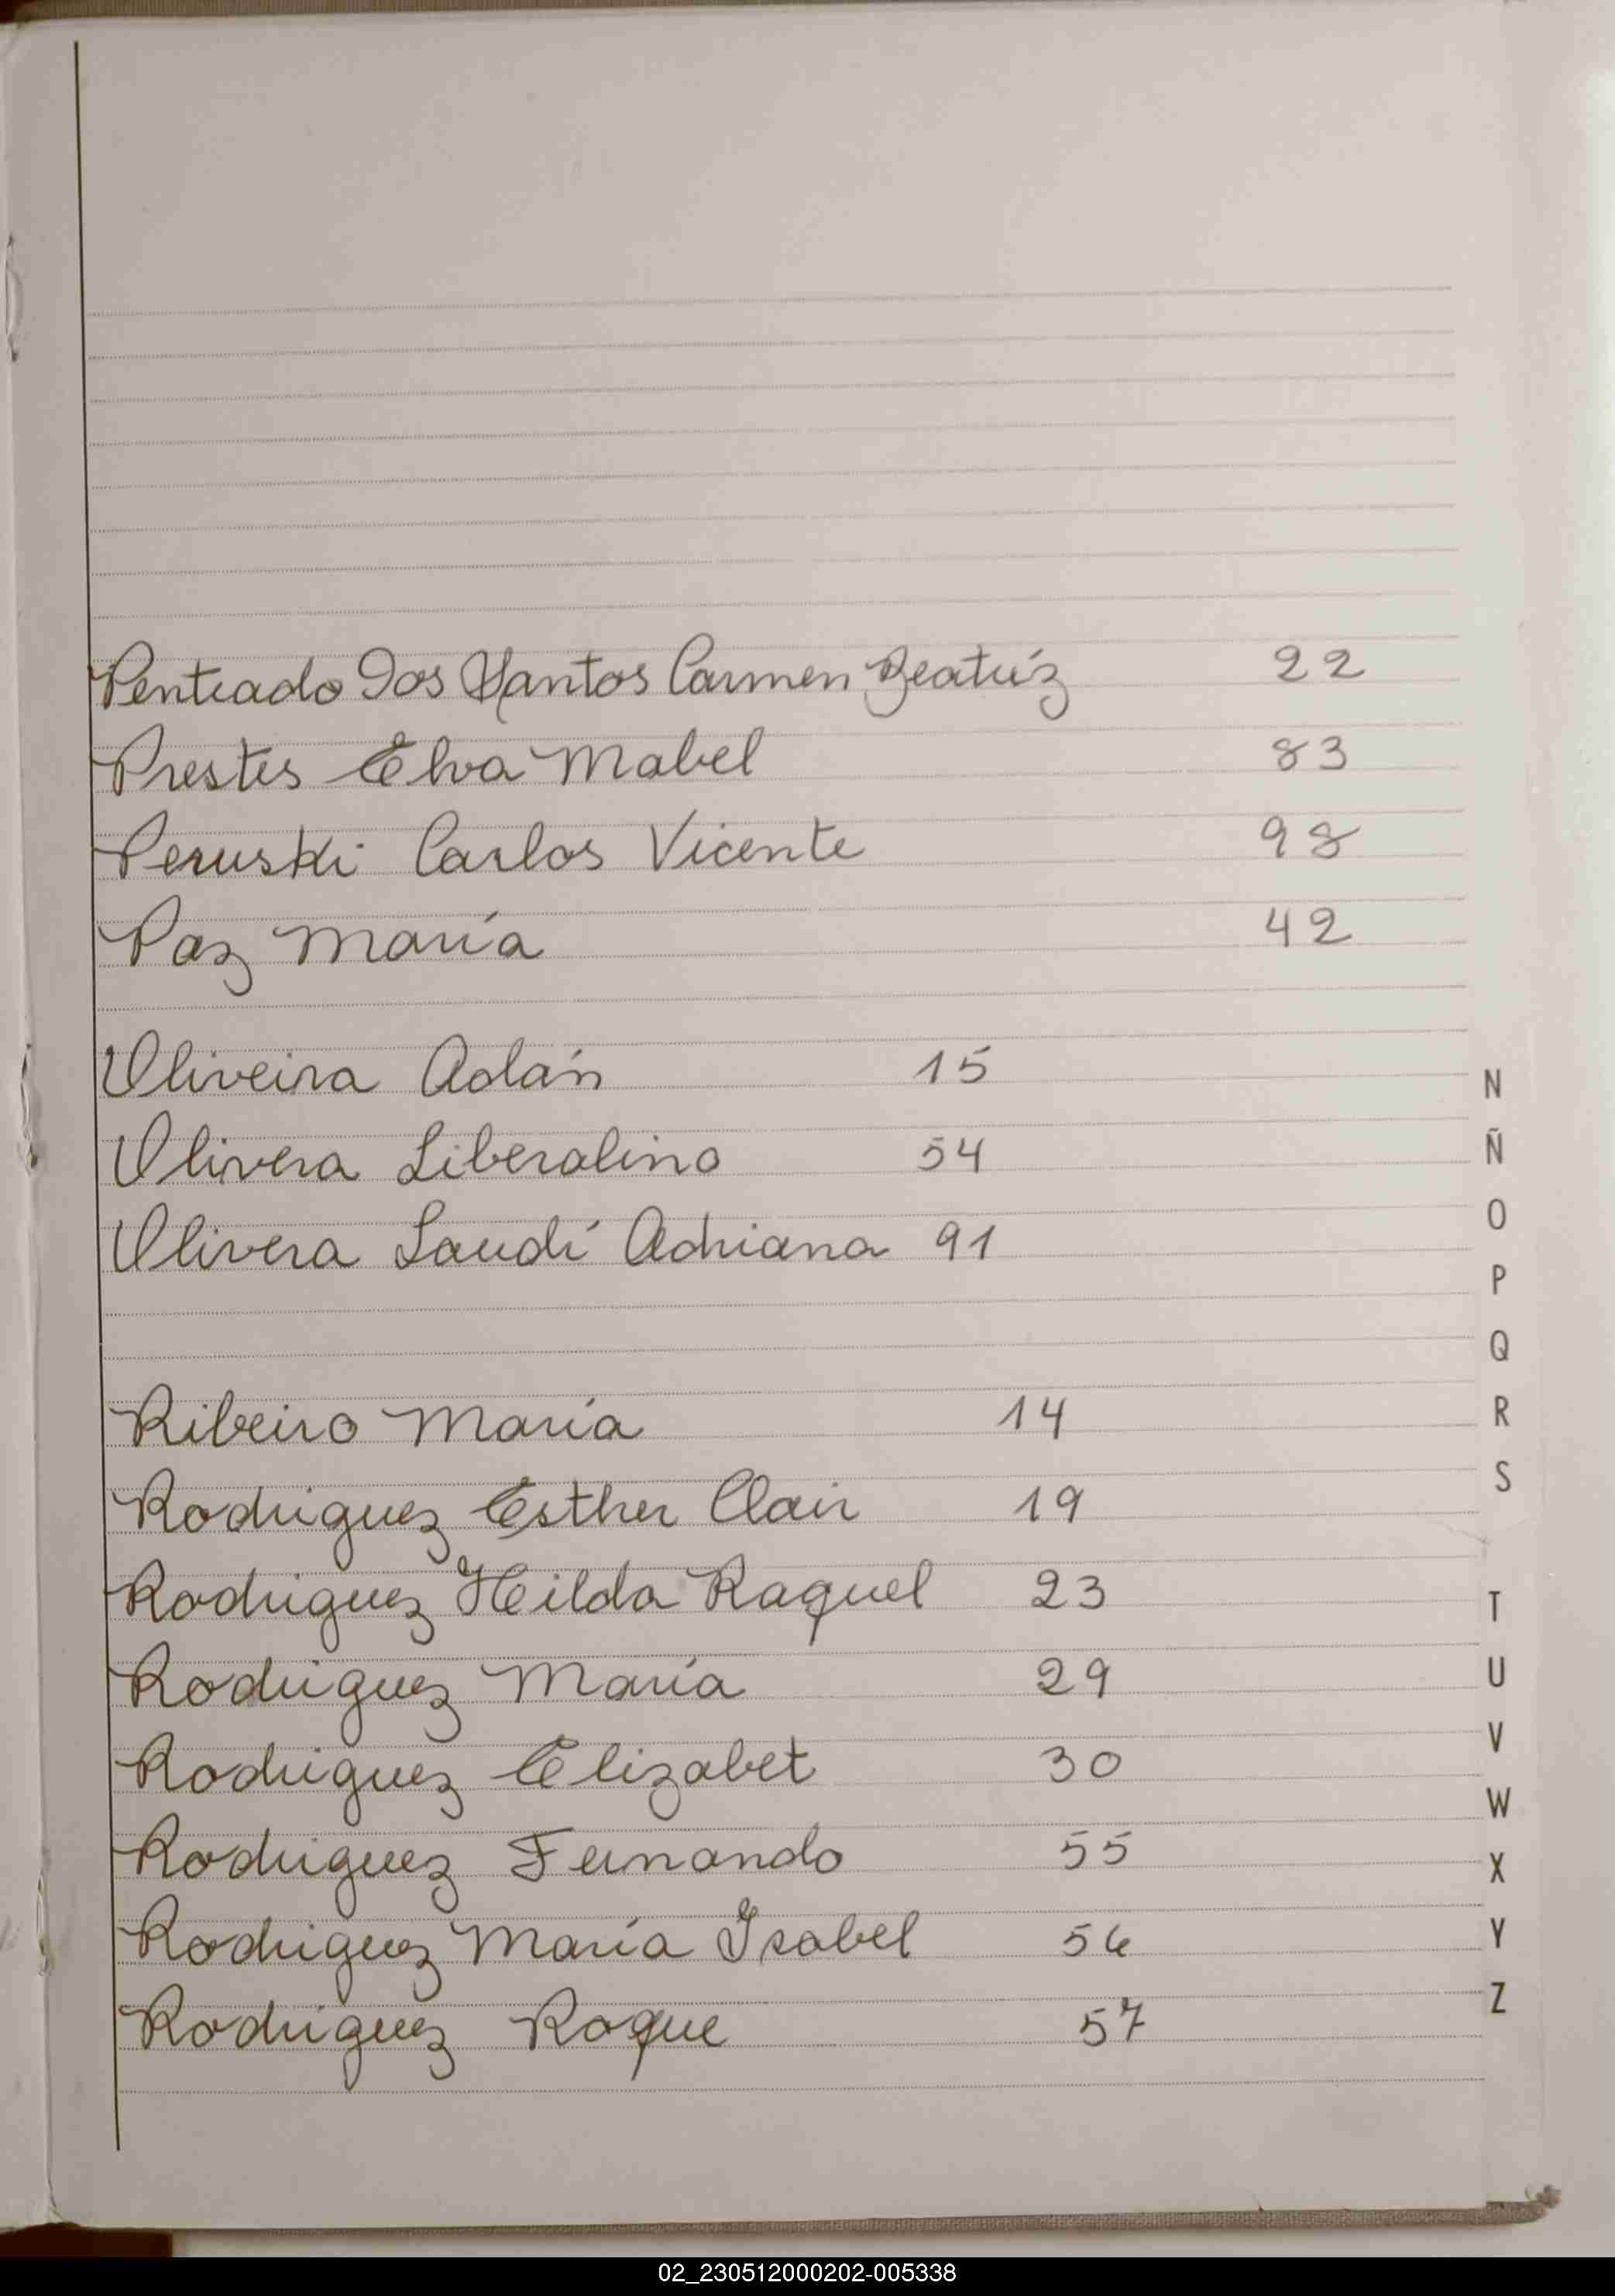 Penteado Dos Santos Carmen Beatríz 22
Prestes Elva Mabel 83
Peruski Carlos Vicente 98
Paz María 42
Oliveira Adán 15
N
Olivera Liberalino 54
Ñ
Olivera Saudí Adriana 91
O
P
Q
Ribeiro María 14
R
S
Rodriguez Esther Clair 19
Rodriguez Hilda Raquel 23
T
Rodriguez María 29
U
V
Rodriguez Elizabet 30
W
Rodriguez Fernando 55
X
Rodriguez María Isabel 56
Y
Z
Rodriguez Roque 57
02_230512000202-005338